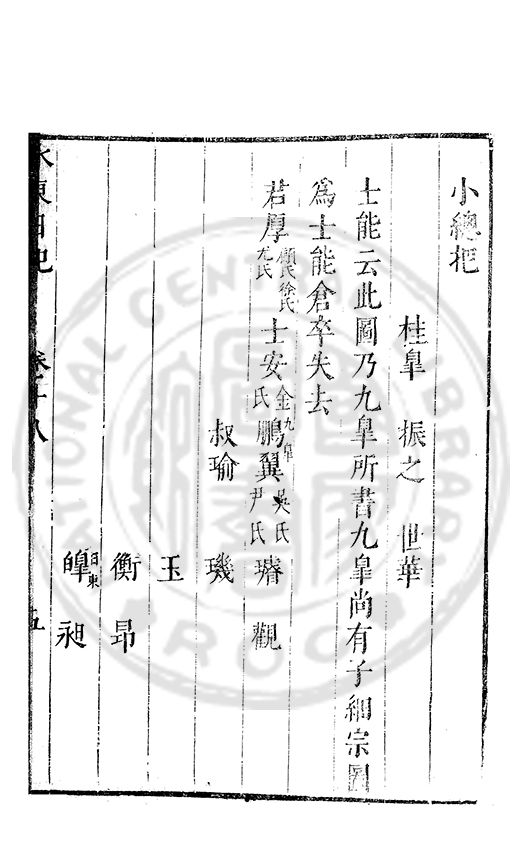 小總把
桂臯 振之 世華
士能云此圖乃九臯所書九臯尚有子細宗圖
爲士能倉卒失去
君厚 顧氏 徐氏 尤氏 士安 金氏 九臯 鵬翼 吳氏 尹氏 璿 觀
叔瑜 璣
玉
衡 昂
日東 皥 昶
水東日記 卷之十八 五